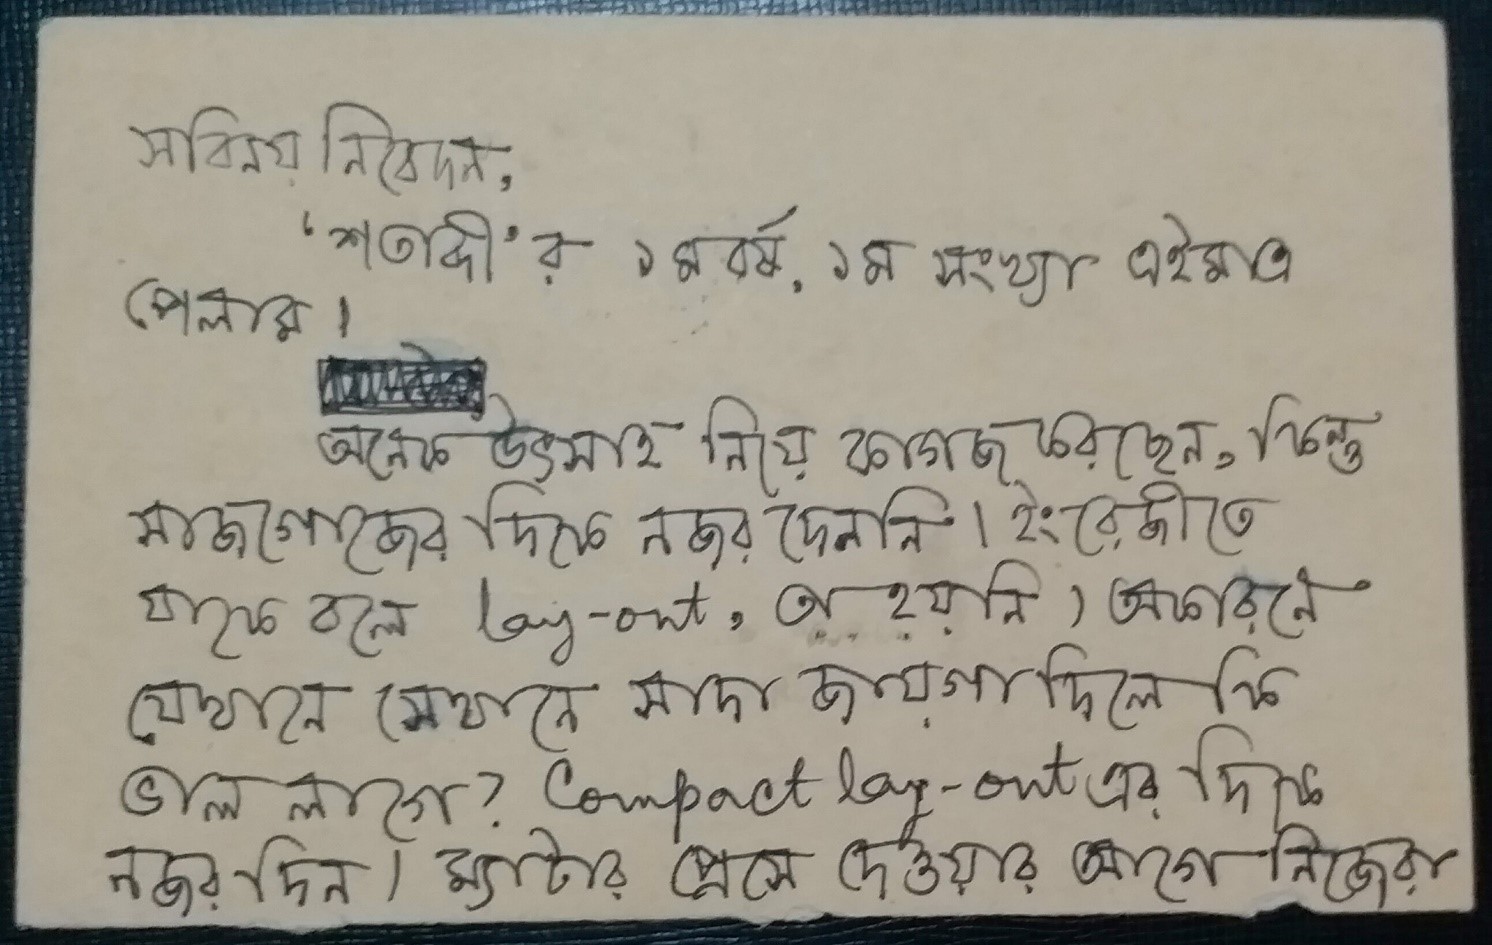 সবিনয় নিবেদন,
'শতাব্দী'র ১ম বর্ষ, ১ম সংখ্যা এইমাত্র
পেলাম।
অনেক উৎসাহ নিয়ে কাগজ করেছেন, কিন্তু
সাজগোজের দিকে নজর দেননি। ইংরেজীতে
যাকে বলে lay-out, তা হয়নি। অকারনে
যেখানে সেখানে সাদা জায়গা দিলে কি
ভাল লাগে? Compact lay-out এর দিকে
নজর দিন। ম্যাটার প্রেসে দেওয়ার আগে নিজেরা